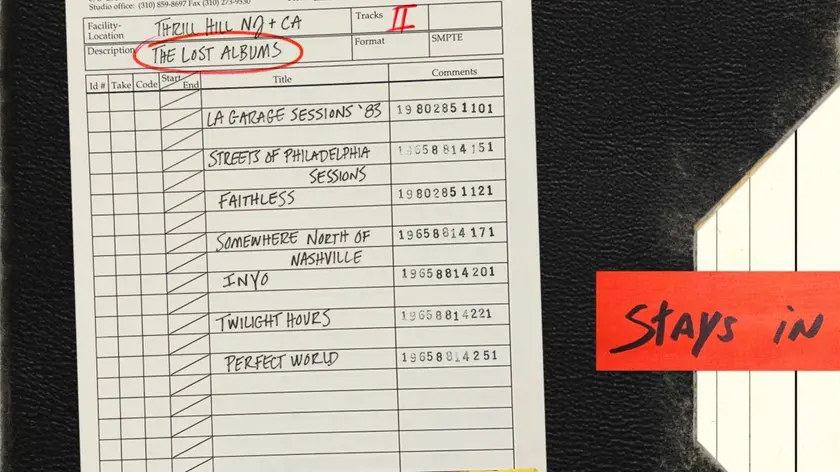 Studio office: (310) 859-8697 Fax (310) 273-9550
Facility-Location THRILL HILL NJ + CA Tracks II
Description THE LOST ALBUMS Format SMPTE
Id # Take Code Start End Title Comments
LA GARAGE SESSIONS '83 19802851101
STREETS OF PHILADELPHIA 19658814151
SESSIONS
FAITHLESS 19802851121
SOMEWHERE NORTH OF 19658814171
NASHVILLE
INYO 19658814201
TWILIGHT HOURS 19658814221
PERFECT WORLD 19658814251
STAYS IN